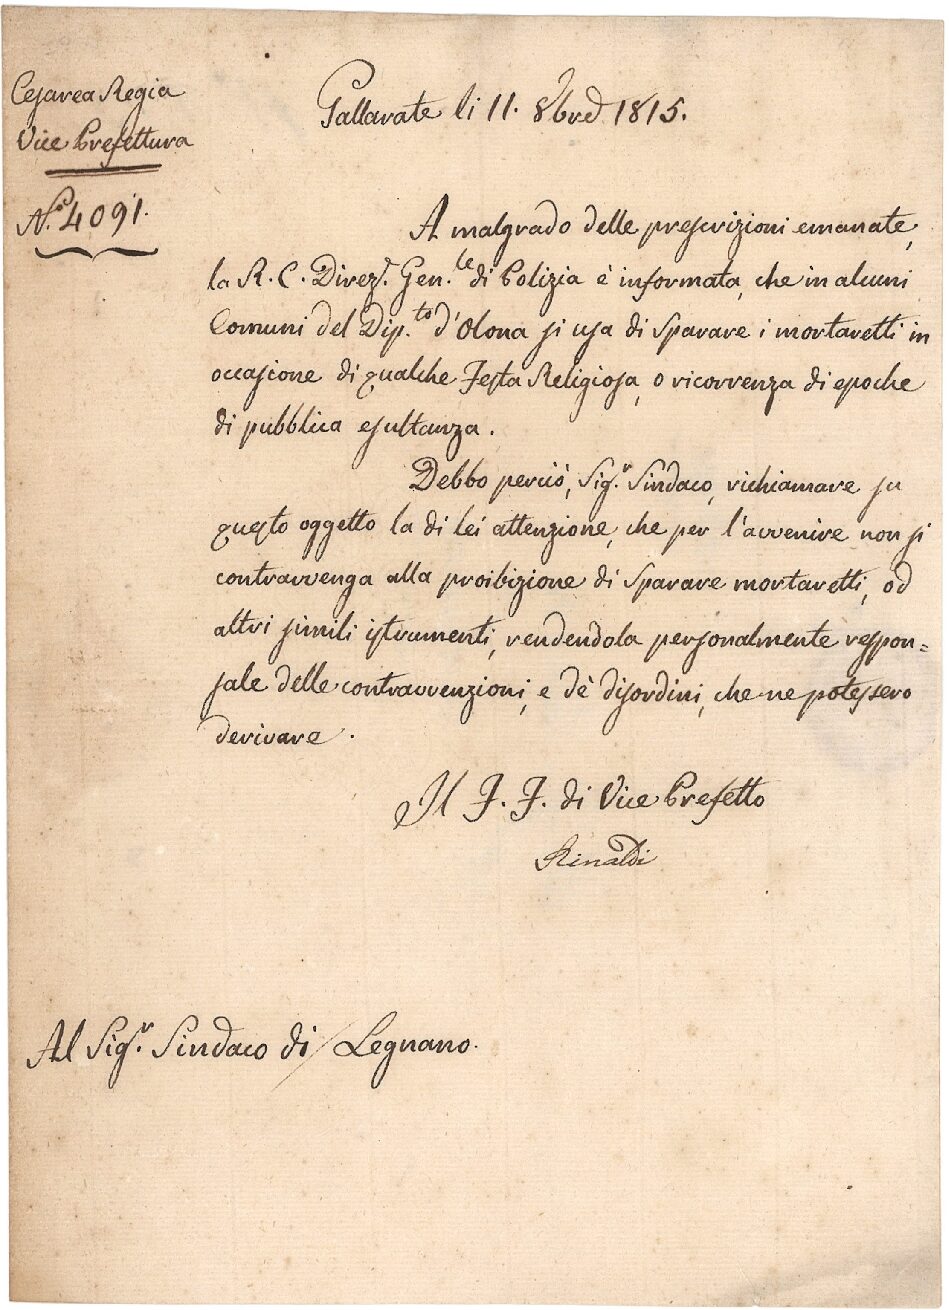 Cesarea Regia
Vice Prefettura
N.° 4091.
Gallarate li 11. 8bre 1815.
A malgrado delle prescrizioni emanate,
la R. C. Direz.e Gen.le di Polizia è informata, che in alcuni
Comuni del Dip.to d'Olona si usa di sparare i mortaretti in
occasione di qualche Festa Religiosa, o ricorrenza di epoche
di pubblica esultanza.
Debbo perciò, Sig.r Sindaco, richiamare su
questo oggetto la di lei attenzione, che per l'avvenire non si
contravvenga alla proibizione di sparare mortaretti, od
altri simili istrumenti, rendendola personalmente respon=
sale delle contravvenzioni, e dè disordini, che ne potessero
derivare.
Il F. F. di Vice Prefetto
Rinaldi
Al Sig.r Sindaco di / Legnano.